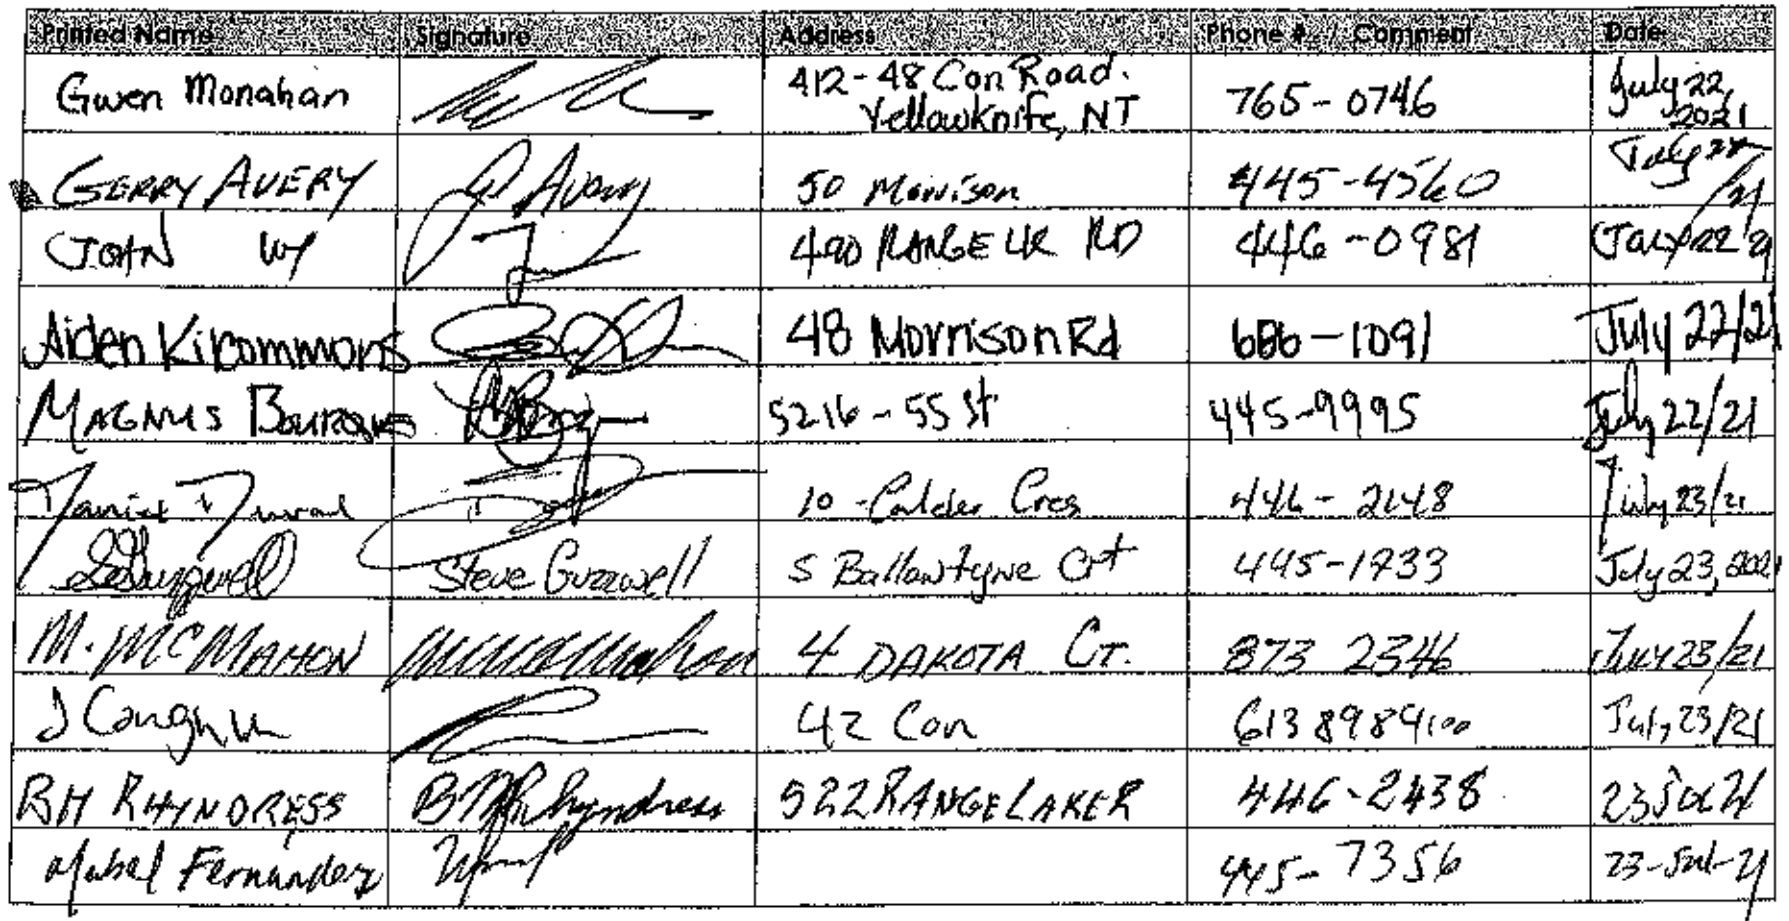 Printed Name Signature Address Phone # / Comment Date
Gwen Monahan 412-48 Con Road. Yellowknife, NT 765-0746 July 22, 2021
GERRY AVERY G Avery 50 Morrison 445-4560 July 22/21
JOHN WY 490 RANGE LK RD 446-0981 JULY 22 21
Aiden Kilcommons 48 Morrison Rd 686-1091 July 22/21
MAGNUS BOURQUE 5216-55 St 445-9995 July 22/21
10 - Calder Cres 446-2648 July 23/21
SGuzzwell Steve Guzzwell 5 Ballantyne Crt 445-1733 July 23, 2021
M. MCMAHON 4 DAKOTA CT. 873 2346 JULY 23/21
42 Con 613 898 4100 July 23/21
BH RHYNDRESS BH Rhyndress 522 RANGE LAKE R 446-2438 23 Jul 21
Mabel Fernandez 445-7356 23-Jul-21